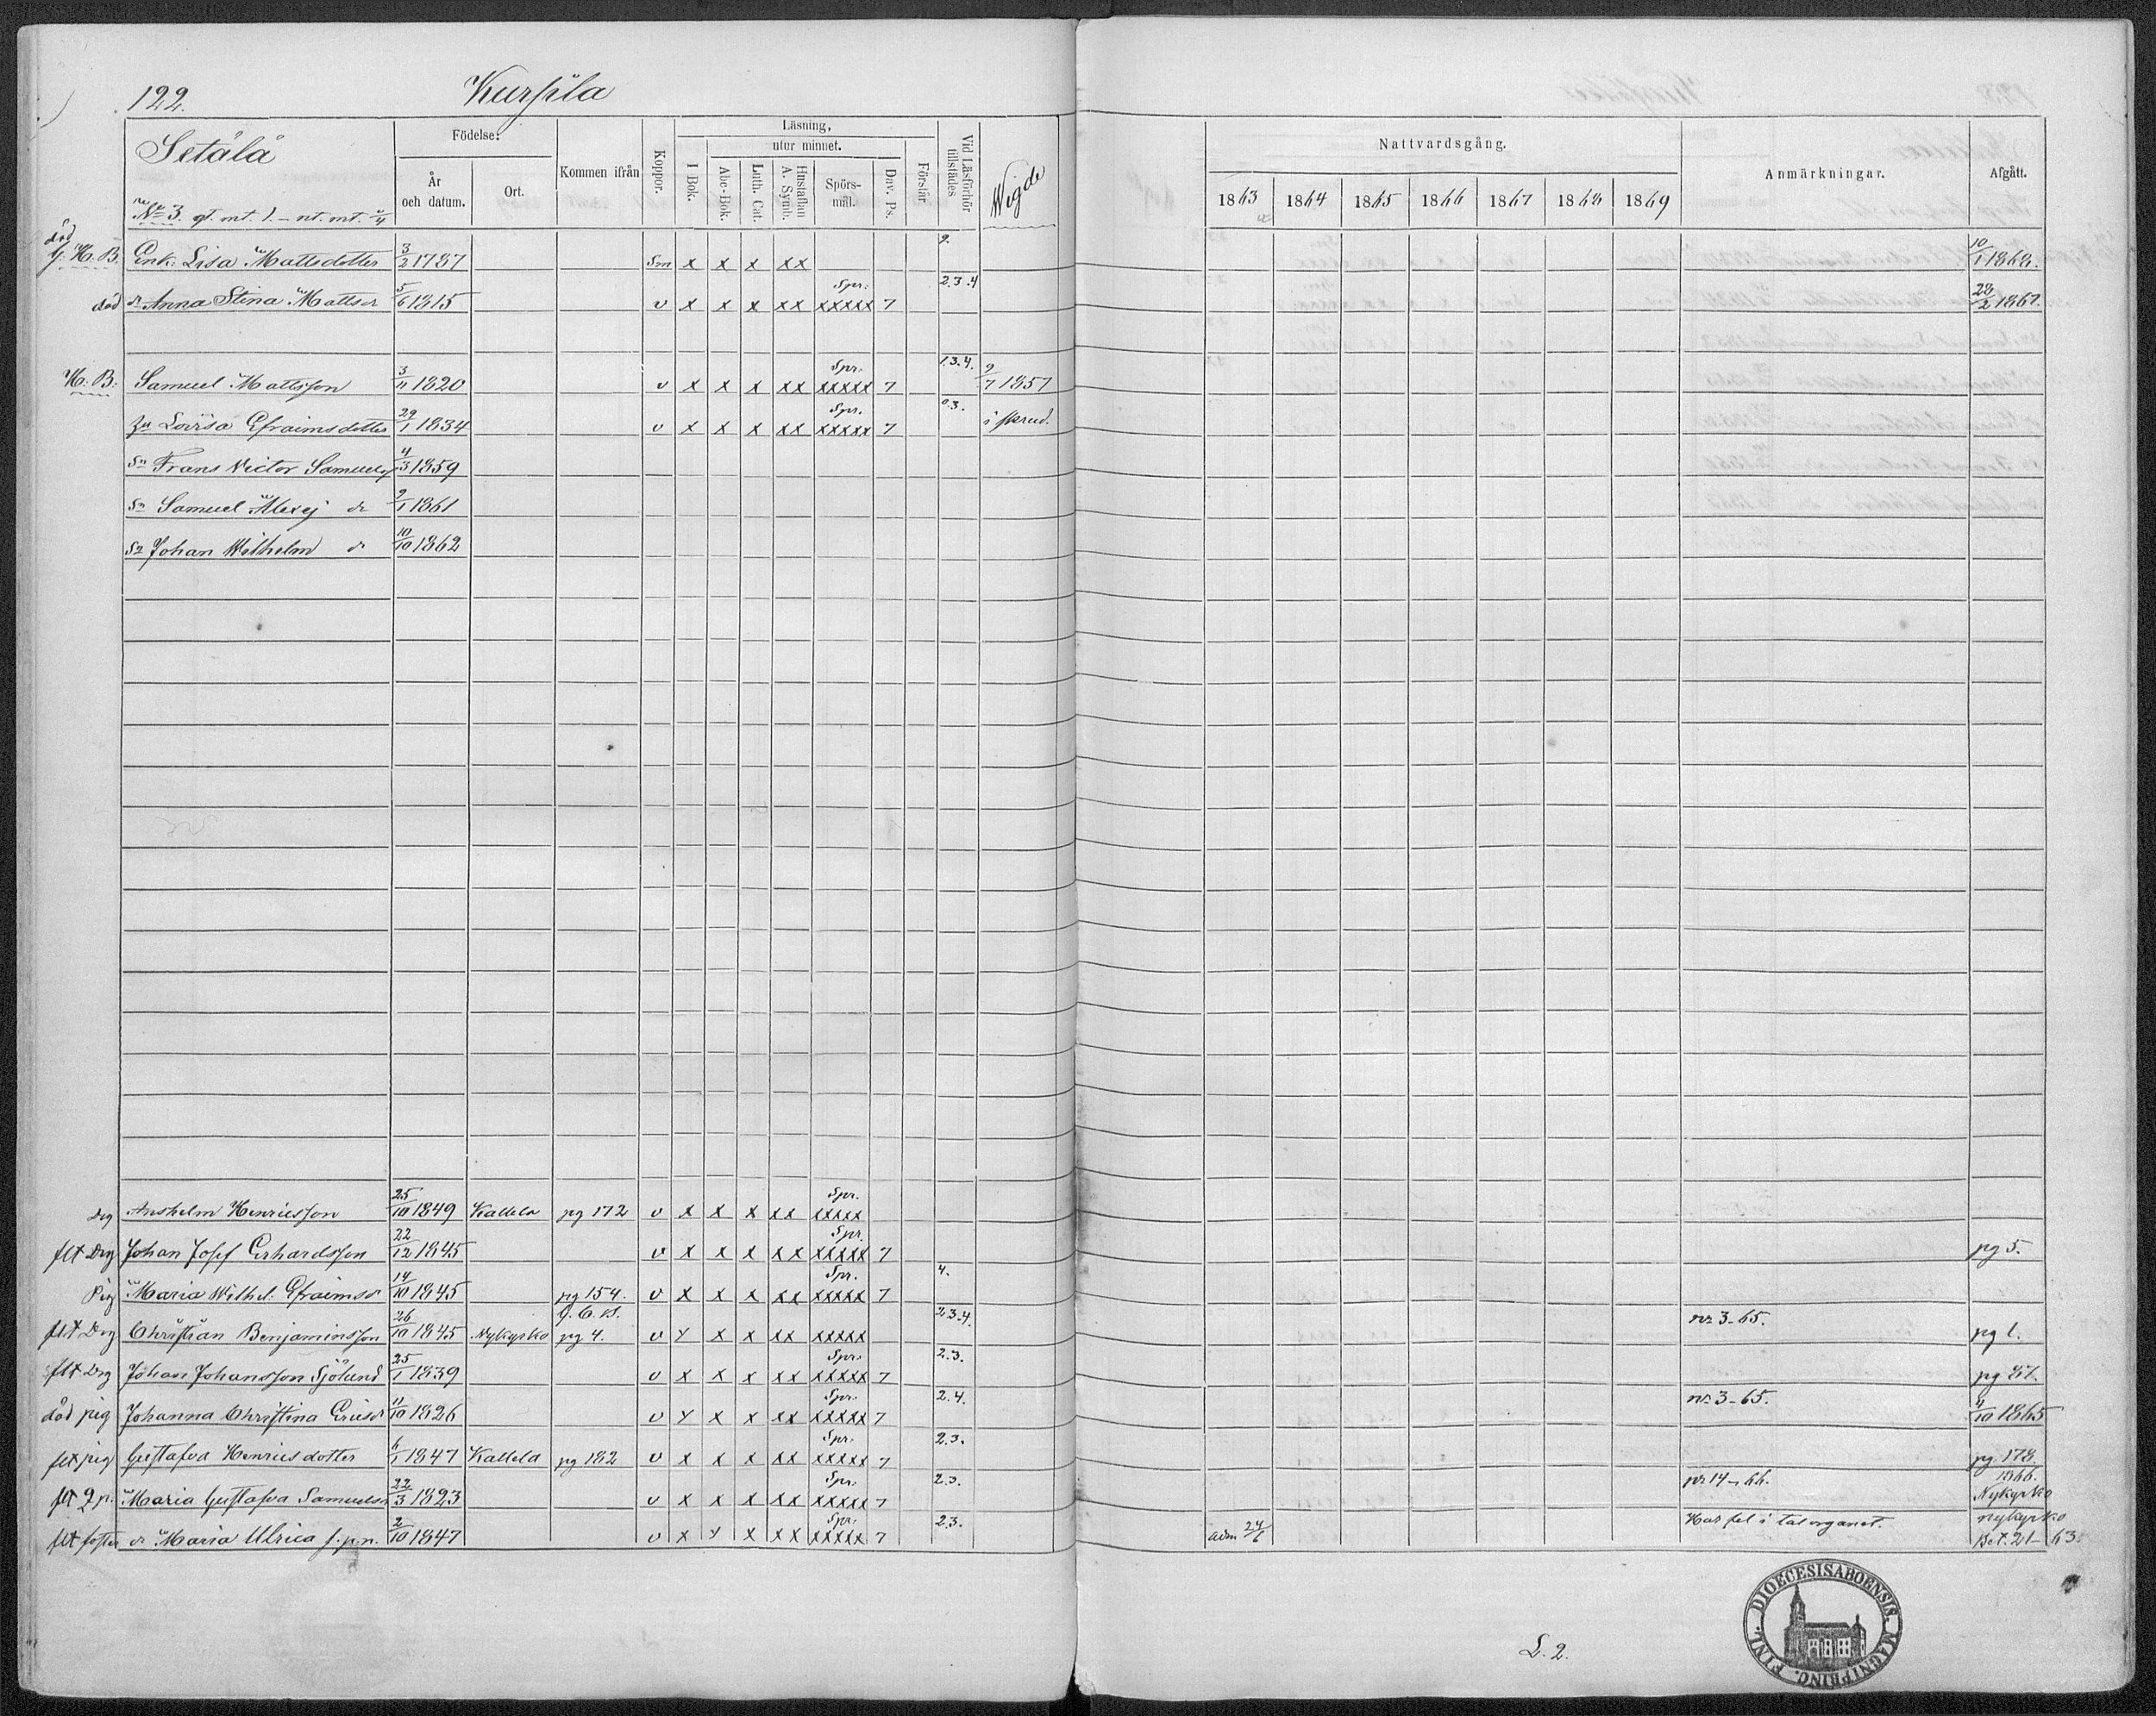 122. Kursila
Setälä
No 3. gt. mt. 1. – nt. mt.
Födelse:
År och datum.
Ort.
Kommen ifrån
Koppor.
Läsning,
I Bok.
utur minnet.
Abc-Bok.
Luth. Cat.
Hustaflan A. Symb.
Spörs-mål.
Dav. Ps.
Förstår.
Vid Läsförhör tillstädes
Wigde
Nattvardsgång.
1863 1864 1865 1866 1867 1868 1869
Anmärkningar.
Afgått.
död
g. H. B. Enk: Lisa Mattsdotter 3/2 1787 Sm x x x xx 2. 10/1 1868.
död dr Anna Stina Mattsdr 5/6 1815 v x x x xx Spr: xxxxx 7 2.3.4 28/2 1867.
H. B: Samuel Mattsson 3/11 1820 v x x x xx Spr. xxxxx 7 1.3.4. 9/7 1857
hu Lovisa Efraimsdotter 29/1 1834 v x x x xx Spr. xxxxx 7 0.3. i skrud.
Sn Frans Victor Samuels 4/3 1859
Sn Samuel Alexej dr 9/1 1861
Sn Johan Wilhelm dr 10/10 1862
Drg Anshelm Henricsson 25/10 1849 Kallela pg 172 v x x x xx Spr. xxxxx
flt Drg Johan Josef Erhardsson 22/12 1845 v x x x xx Spr. xxxxx 7 pg 5.
Pig Maria Wilhel. Efraimsdr 14/10 1845 pg 154. v x x x xx Spr. xxxxx 7 4.
flt Drg Christian Benjaminsson 26/10 1845 Nykyrko pg 4. v x x x xx xxxxx 2.3.4. nr 3–65. pg 1.
flt Drg Johan Johansson Sjölund 25/1 1839 v x x x xx Spr: xxxxx 7 2.3. pg 87.
död pig Johanna Christina Ericsdr 11/10 1826 v x x x xx Spr. xxxxx 7 2.4. nr 3–65. 4/10 1865
flt pig Gustafva Henricsdotter 6/1 1847 Kallela pg 182 v x x x xx Spr. xxxxx 7 2.3. pg. 178.
flt q. p. Maria Gustafva Samuelsdr 22/3 1823 v x x x xx Spr. xxxxx 7 2.3. nr 14–66. 1866. Nykyrko
flt foster dr Maria Ulrica f.p.n. 2/10 1847 v x x x xx Spr. xxxxx 7 2.3. adm 24/6 Har fel i talorganet. Nykyrko
Bet. 21–63.
L. 2.
DIOECESIS ABOENSIS. MAGNI PRINC. FINL.